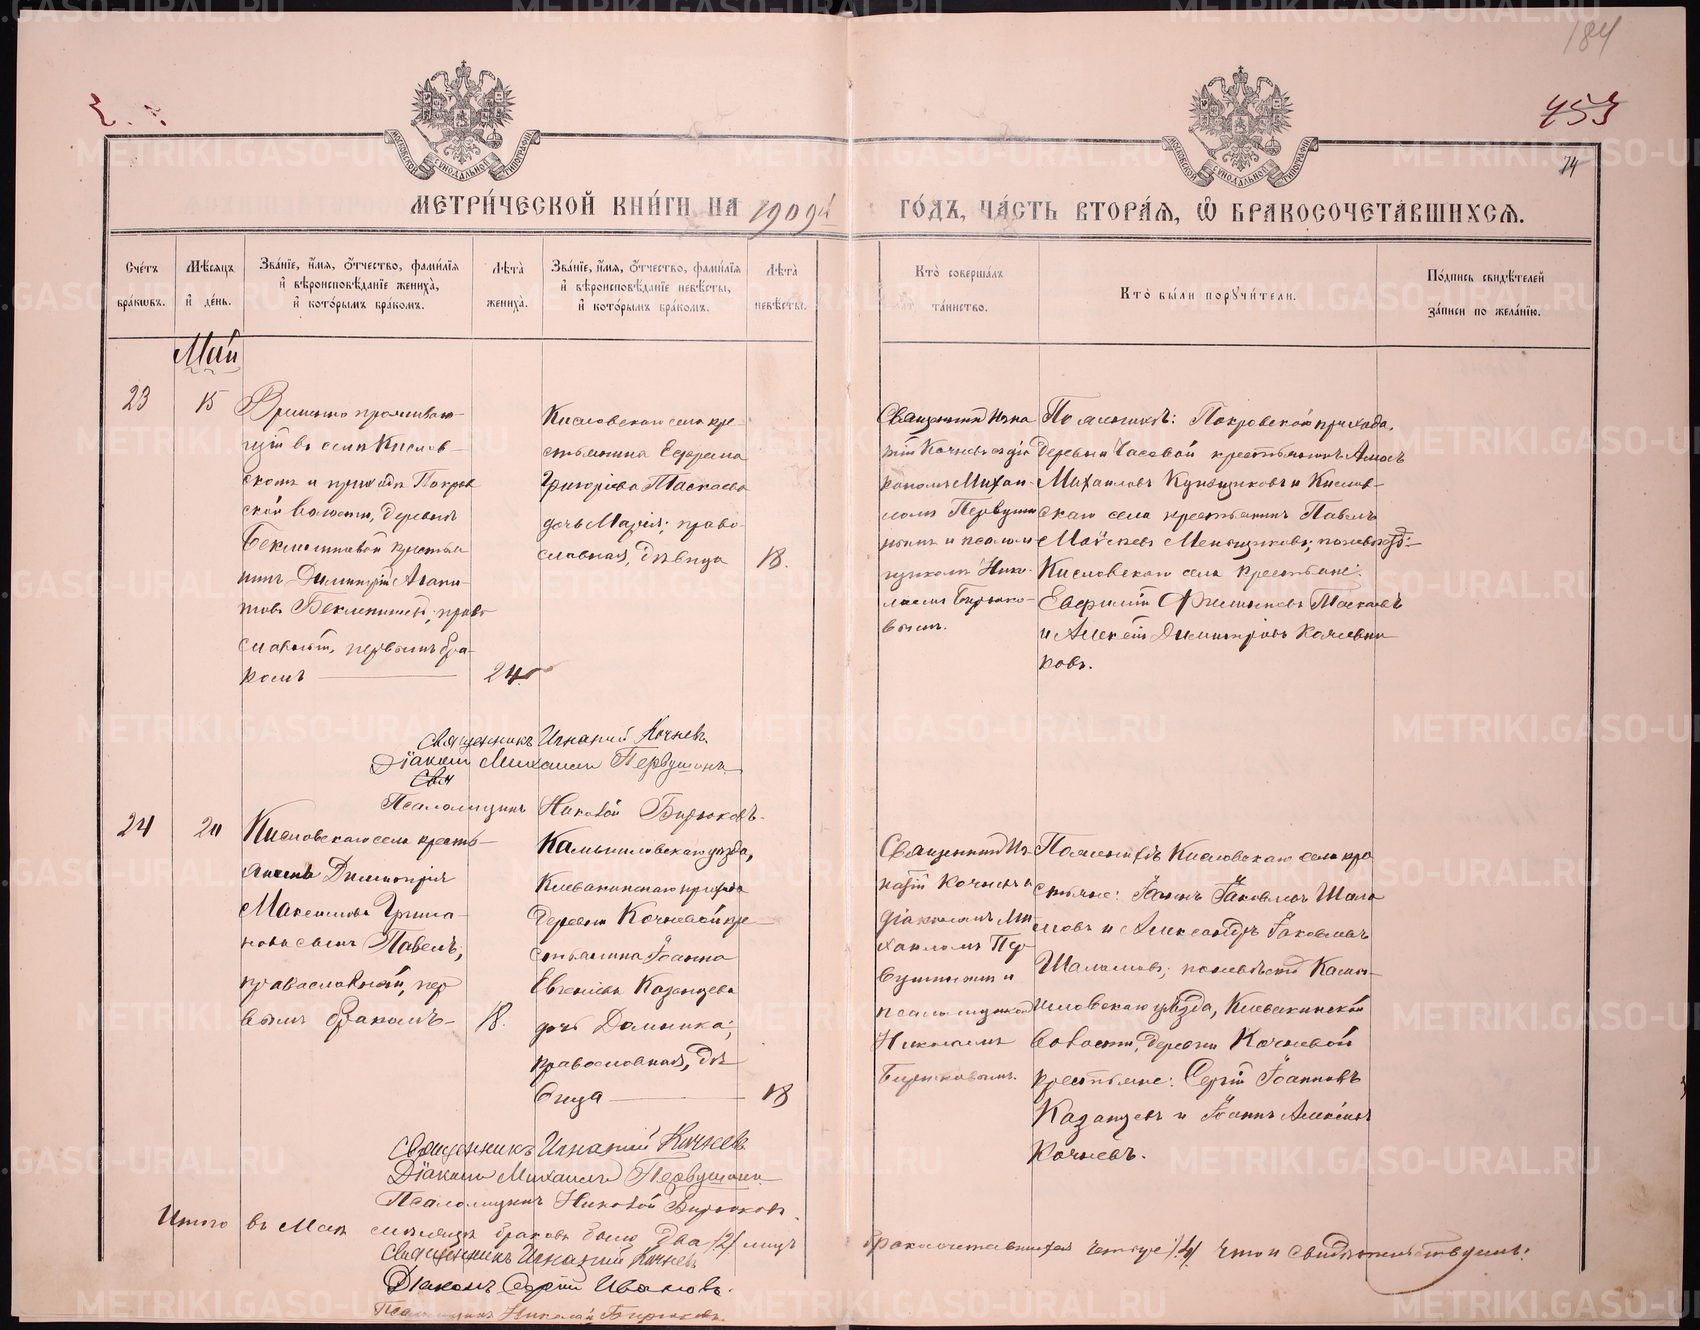 184
453
74
МОСКОВСКОЙ СѴНОДАЛЬНОЙ ТИПОГРАФІИ
МОСКОВСКОЙ СѴНОДАЛЬНОЙ ТИПОГРАФІИ
МЕТРИ́ЧЕСКОЙ КНИ́ГИ НА 1909й ГО́ДЪ, ЧА́СТЬ ВТОРА́Ѧ, Ѡ҆ БРАКОСОЧЕТА́ВШИХСѦ.
Сче́тъ бра́кѡвъ.
Мѣ́сѧцъ и҆ де́нь.
Зва́нїе, и҆́мѧ, ѻ҆́тчество, фами́лїѧ и҆ вѣроисповѣ́данїе жениха̀, и҆ кото́рымъ бра́комъ.
Лѣ́та жениха̀.
Зва́нїе, и҆́мѧ, ѻ҆́тчество, фами́лїѧ и҆ вѣроисповѣ́данїе невѣ́сты, и҆ кото́рымъ бра́комъ.
Лѣ́та невѣ́сты.
Кто̀ соверша́лъ та́инство.
Кто̀ бы́ли порꙋчи́тели.
По́дпись свидѣ́телей за́писи по жела́нїю.
Май
23
15
Временно проживаю-
щій въ селѣ Кислов-
скомъ и приходѣ Покров
ской волости, деревни
Беклемишевой крестья
нинъ Димитрій Агапи-
товъ Беклемишевъ, право
славный, первымъ бра-
комъ
24
Кисловскаго села кре-
стьянина Ефрема
Григоріева Таскаева
дочь Марія; право-
славная, дѣвица
18.
Священникъ Игна
тій Кочневъ съ діа
кономъ Михаи-
ломъ Первуши
нымъ и псалом
щикомъ Нико-
лаемъ Бирюко-
вымъ.
По женихѣ: Покровскаго прихода,
деревни Часовой крестьянинъ
Михаиловъ и Кислов-
скаго села крестьянинъ Павелъ
Моисеевъ Меньщиковъ; по невѣстѣ:
Кисловскаго села крестьяне:
Евфимій Филипповъ Таскаевъ
и Алексѣй Димитріевъ
ковъ.
Священникъ Игнатій Кочневъ.
Діаконъ Михаилъ Первушинъ
Свя
Псаломщикъ Николай Бирюковъ.
24
20
Кисловскаго села кресть-
янина Димитрія
Максимова
нова сынъ Павелъ,
православный, пер
вымъ бракомъ
18.
Камышловскаго уѣзда,
Клевакинскаго прихода
деревни Кочневой кре-
стьянина Іоанна
Евгеніева Казанцева
дочь Домника;
православная, дѣ
вица
18
Священникъ Иг-
натій Кочневъ съ
діакономъ Ми-
хаиломъ Пер-
вушинымъ и
псаломщикомъ
Николаемъ
Бирюковымъ.
По женихѣ Кисловскаго села кре
стьяне: Іоаннъ Іаковлевъ Шала
мовъ и Александръ Іаковлевъ
Шаламовъ; по невѣстѣ Камы-
шловскаго уѣзда, Клевакинской
волости, деревни Кочневой
крестьяне: Сергій Іоанновъ
Казанцевъ и Іоаннъ Алексѣевъ
Кочневъ.
Священникъ Игнатій Кочневъ
Діаконъ Михаилъ Первушинъ
Псаломщикъ Николай Бирюковъ.
Итого въ Маѣ мѣсяцѣ браковъ было два /2/ лицъ бракосочетавшихся четыре /4/ что и свидѣтельствуемъ:
Священникъ Игнатій Кочневъ
Діаконъ Сергій Ивановъ.
Псаломщикъ Николай Бирюковъ.
METRIKI.GASO-URAL.RU